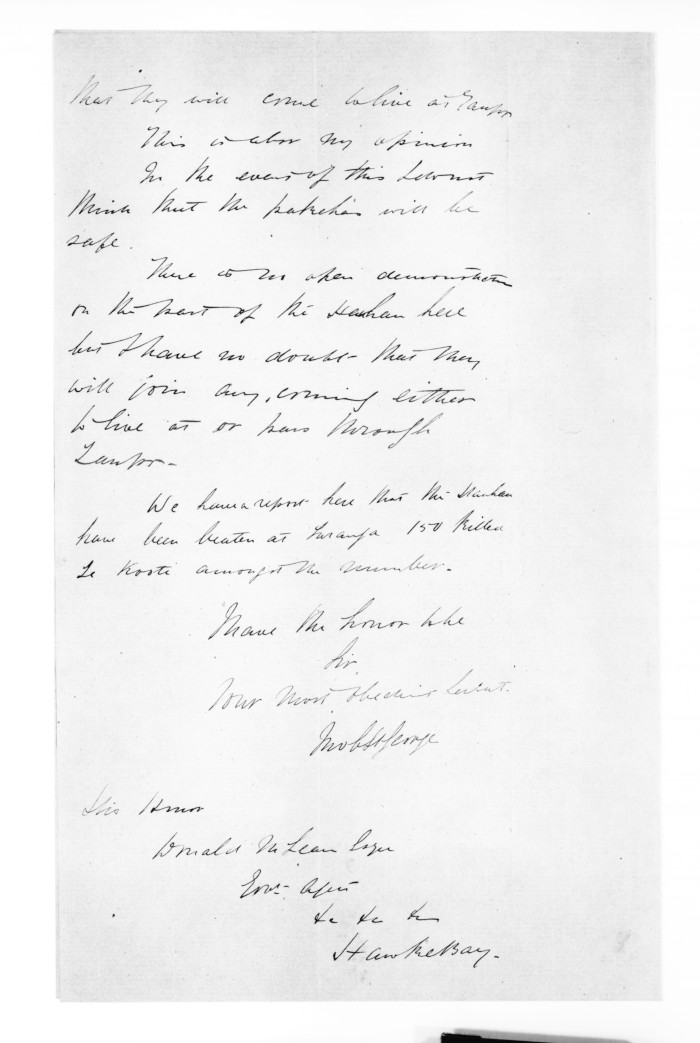 that they will come to live at Taupo
This is also my opinion
In the event of this I do not
think that the pakehas will be
safe.
There is no open demonstration
on the part of the Hauhau here
but I have no doubt that they
will join any, coming either
to live at or pass through
Taupo-
We have a report here that the Hauhau
have been beaten at Turanga 150 killed
Te Kooti amongst the number-
I have the honor to be
Sir
Your Most Obedient Servt.
Jno C StGeorge
His Honor
Donald McLean Esqre
Govt Agent
&c &c &c
Hawke Bay-